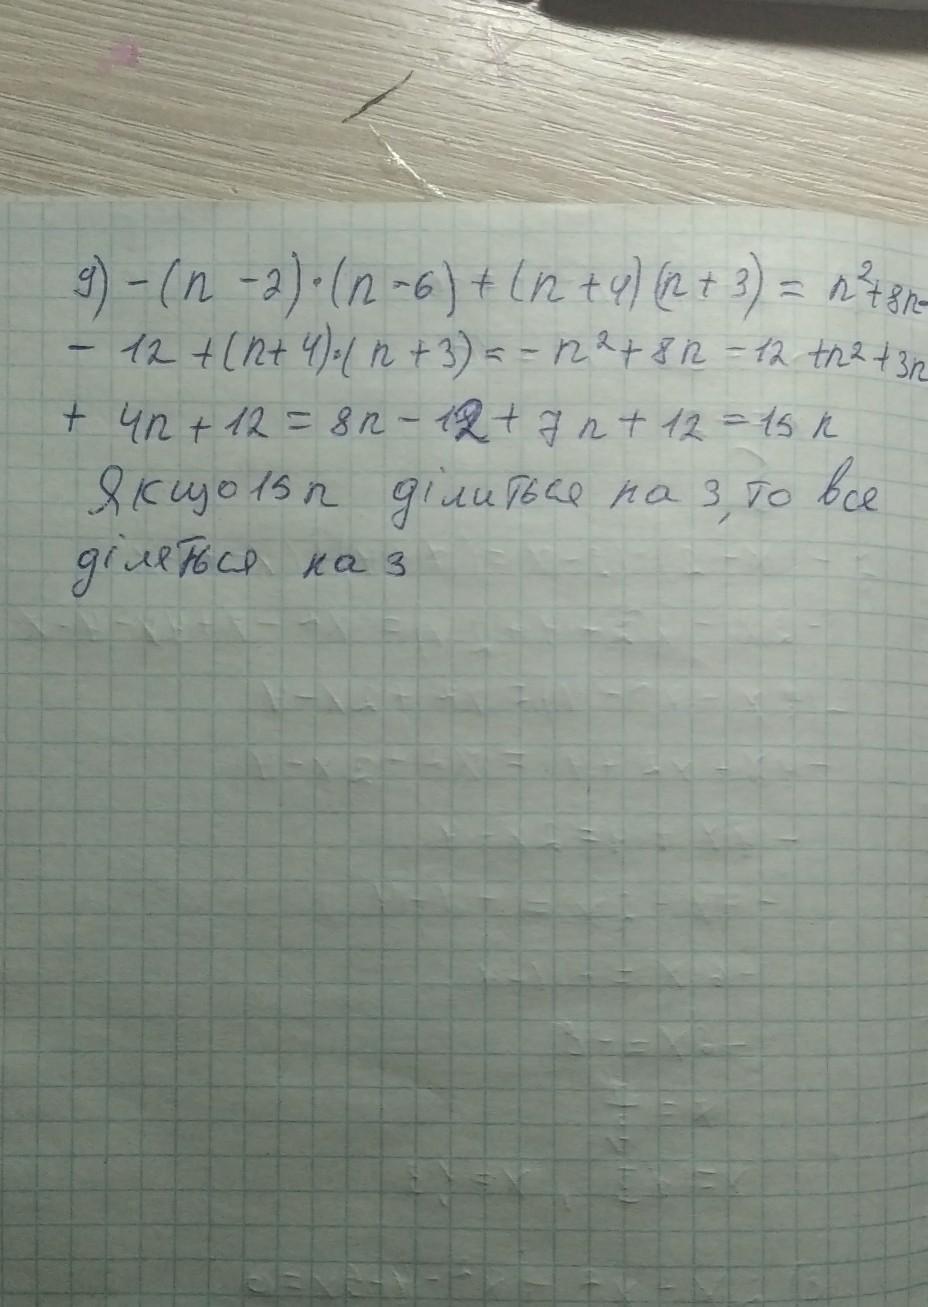 9) -(n -2)·(n-6)+(n+4)(n+3)= n²+8n-
- 12 +(n+4)·(n+3)=-n²+8n-12 +n²+3n
+ 4n+12=8n-12+7n+12=15n
Якщо15n ділиться на 3,то все
діляться на 3